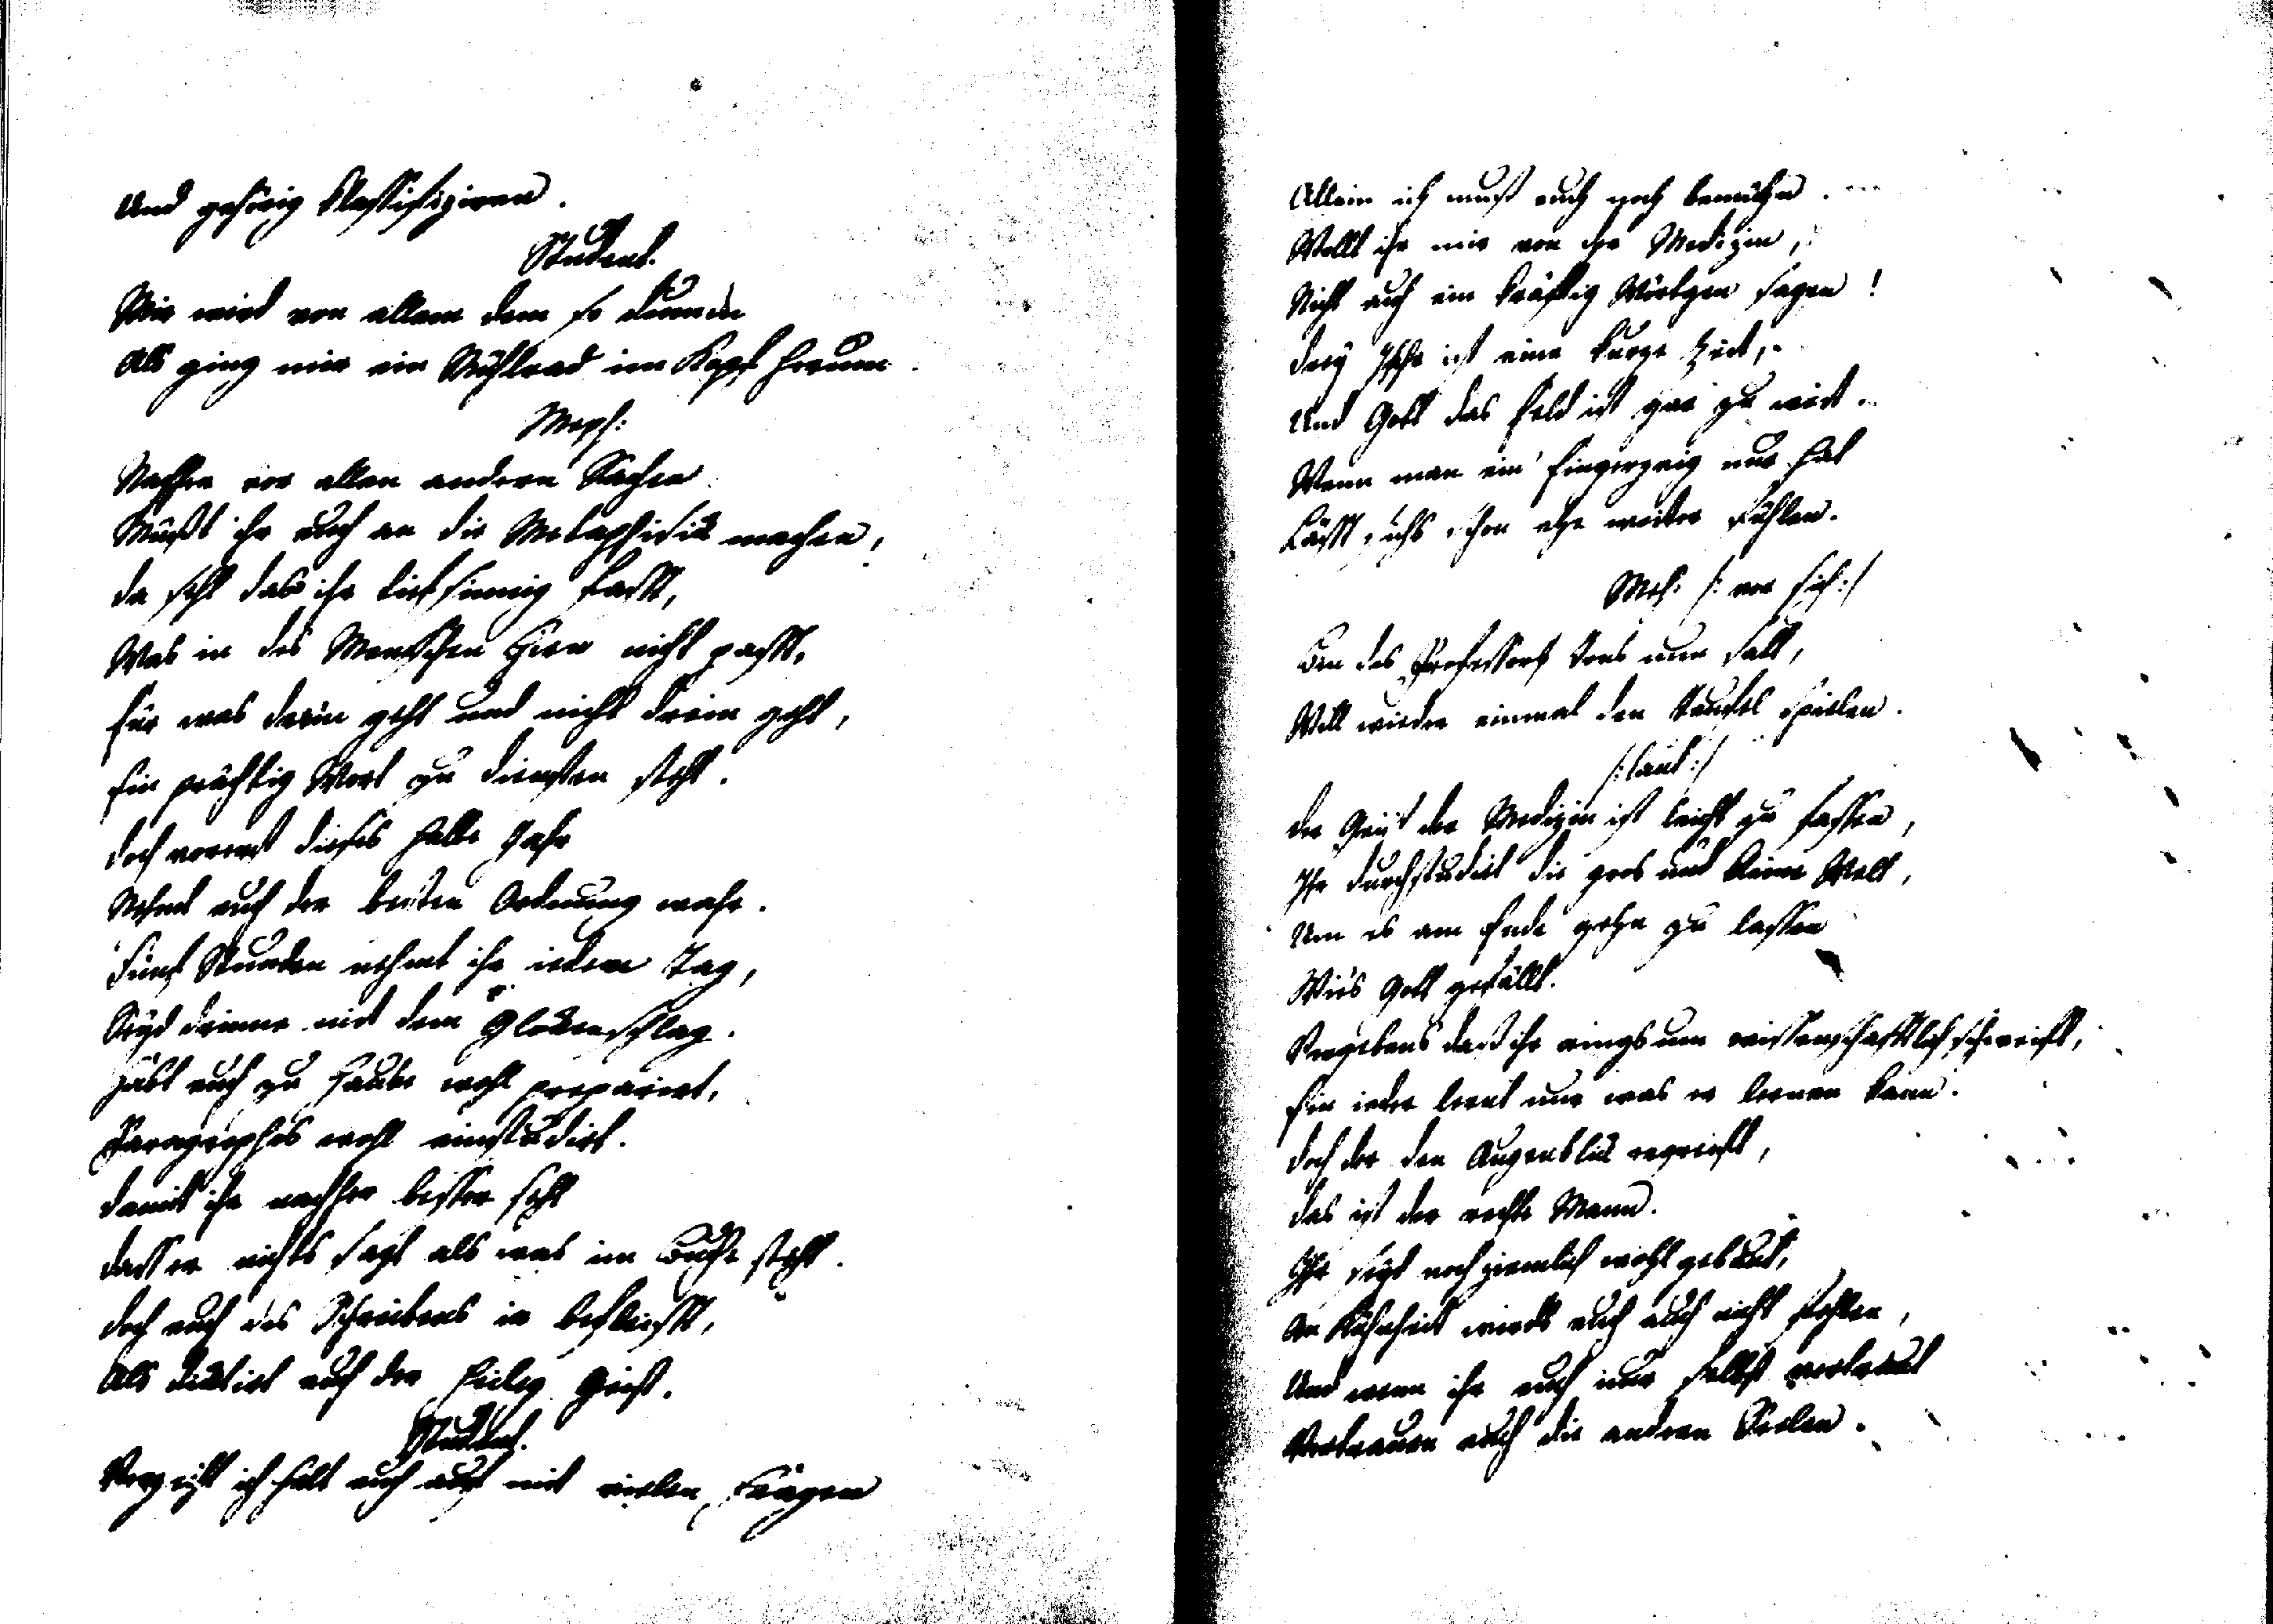 Und gehörig klassifiziren.
Student.
Mir wird von allem dem so dumm
Als ging mir ein Mühlrad im Kopf herum.
Meph:
Nachher vor allen andern Sachen
Müsst ihr euch an die Metaphisick machen,
da seht dass ihr tiefsinnig fasst,
Was in des Menschen Hirn nicht passt,
für was drein geht und nicht drein geht,
Ein prächtig Wort zu diensten steht.
doch vorerst dieses halbe Jahr
Nehmt euch der besten Ordnung wahr.
Fünf Stunden nehmt ihr ieden Tag,
Seyd drinne mit dem Glockenschlag.
Habt euch zu Hause wohl preparirt,
Paragraphos wohl einstudirt.
damit ihr nachher besser seht
dass er nichts sagt als was im Buche steht.
doch euch des Schreibens ia befleisst,
Als dicktirt euch der heilig Geist.
Student.
Verzeiht ich halt euch auf mit vielen Fragen
Allein ich muss euch noch bemühn.
Wollt ihr mir von der Medizin,
Nicht auch ein kräftig Wörtgen sagen!
drey Jahr ist eine kurze Zeit,
Und Gott das Feld ist gar zu weit.
Wenn man ein' Fingerzeig nur hat
Lässt sichs schon ehe weiter fühlen.
Meph: /: vor sich :/
Bin des Professortons nun satt,
Will wieder einmal den Teufel spielen.
/: laut :/
der Geist der Medizin ist leicht zu fassen,
Ihr durchstudirt die gros und kleine Welt,
Um es am Ende gehn zu lassen
Wie's Gott gefällt.
Vergebens dass ihr ringsum wissenschafftlich schweift,
Ein ieder lernt nur was er lernen kann.
doch der den Augenblick ergreift,
das ist der rechte Mann.
Ihr seyd noch ziemlich wohl gebaut,
An Kühnheit wirds euch auch nicht fehlen,
Und wenn ihr euch nur selbst vertraut
Vertrauen euch die andern Seelen.